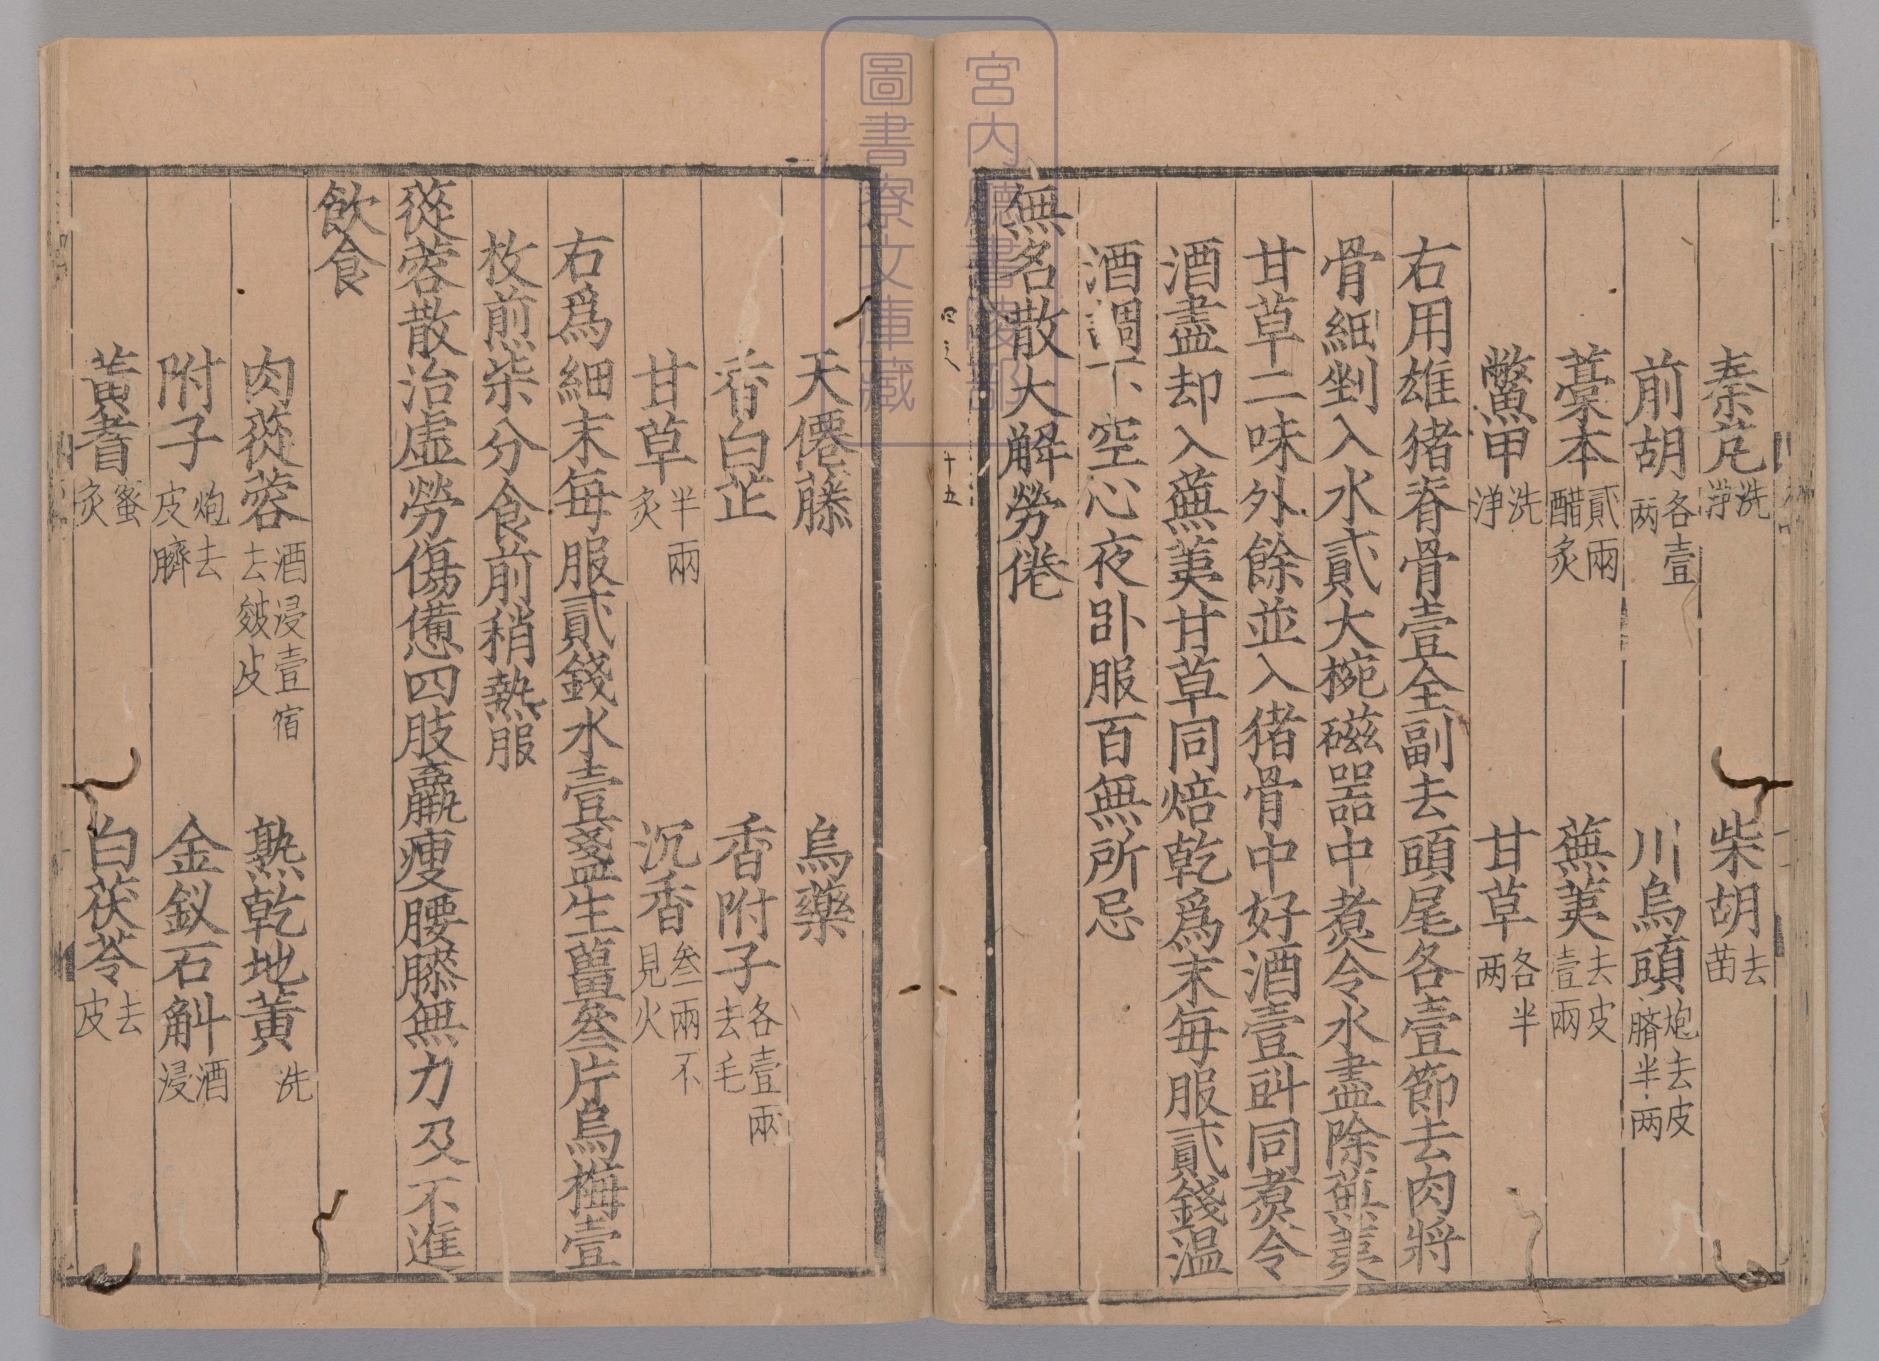 秦艽洗浄 柴胡去苗
前胡各壹两 川烏頭炮去皮臍半两
藁本貳兩醋炙 蕪荑去皮壹兩
鱉甲洗浄 甘草各半两
右用雄猪脊骨壹全副去頭尾各壹節去肉將
骨細剉入水貳大椀磁器中煮令水盡除蕪荑
甘草二味外餘並入猪骨中好酒壹㪷同煮令
酒盡却入蕪荑甘草同焙乾爲末每服貳錢温
酒調下空心夜卧服百無所忌
無名散大解勞倦
天僊藤 烏藥
香白芷 香附子各壹兩去毛
甘草半兩炙 沉香叁兩不見火
右爲細末每服貳錢水壹盞生薑叁片烏梅壹
枚煎柒分食前稍熱服
蓯蓉散治虛勞傷憊四肢羸瘦腰膝無力及不進
飲食
肉蓯蓉酒浸壹宿去皴皮 熟乾地黃洗
附子炮去皮臍 金釵石斛酒浸
黃耆蜜炙 白茯苓去皮
宮内廳書陵部
圖書寮文庫藏
十五